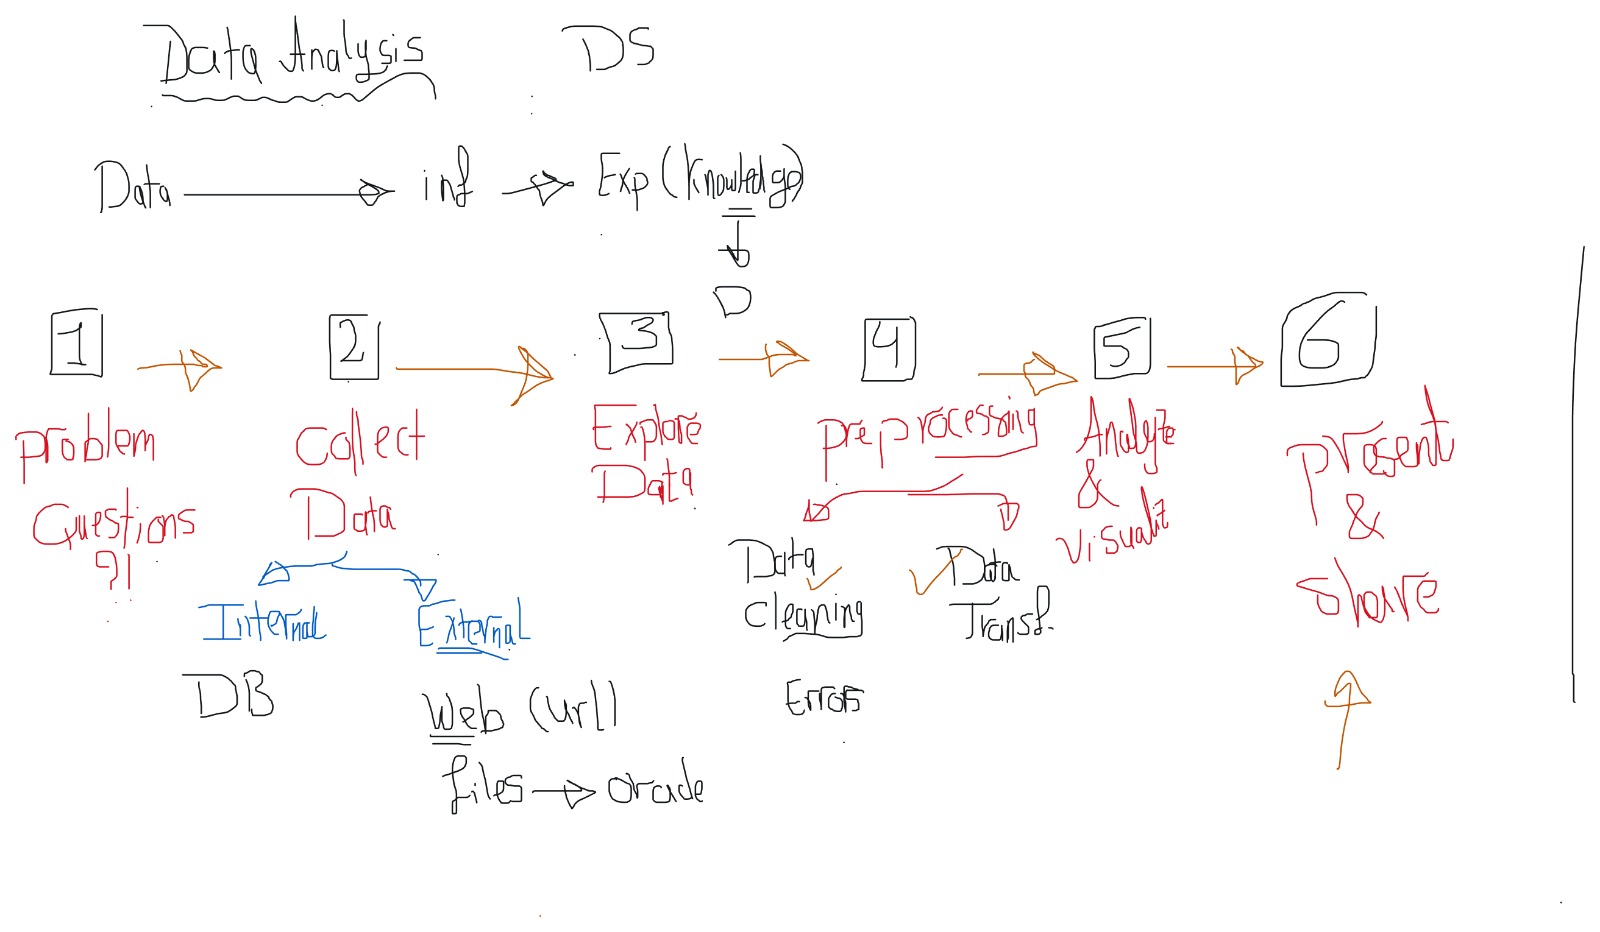 Data Analysis DS
Data inf Exp (Knowledge)
D
1 2 3 4 5 6
problem
Questions
?!
Collect
Data
Internal External
DB
Web (url)
files oracle
Explore
Data
preprocessing
Data
Cleaning
Errors
Data
Transf.
Analyze
&
Visualiz
present
&
share